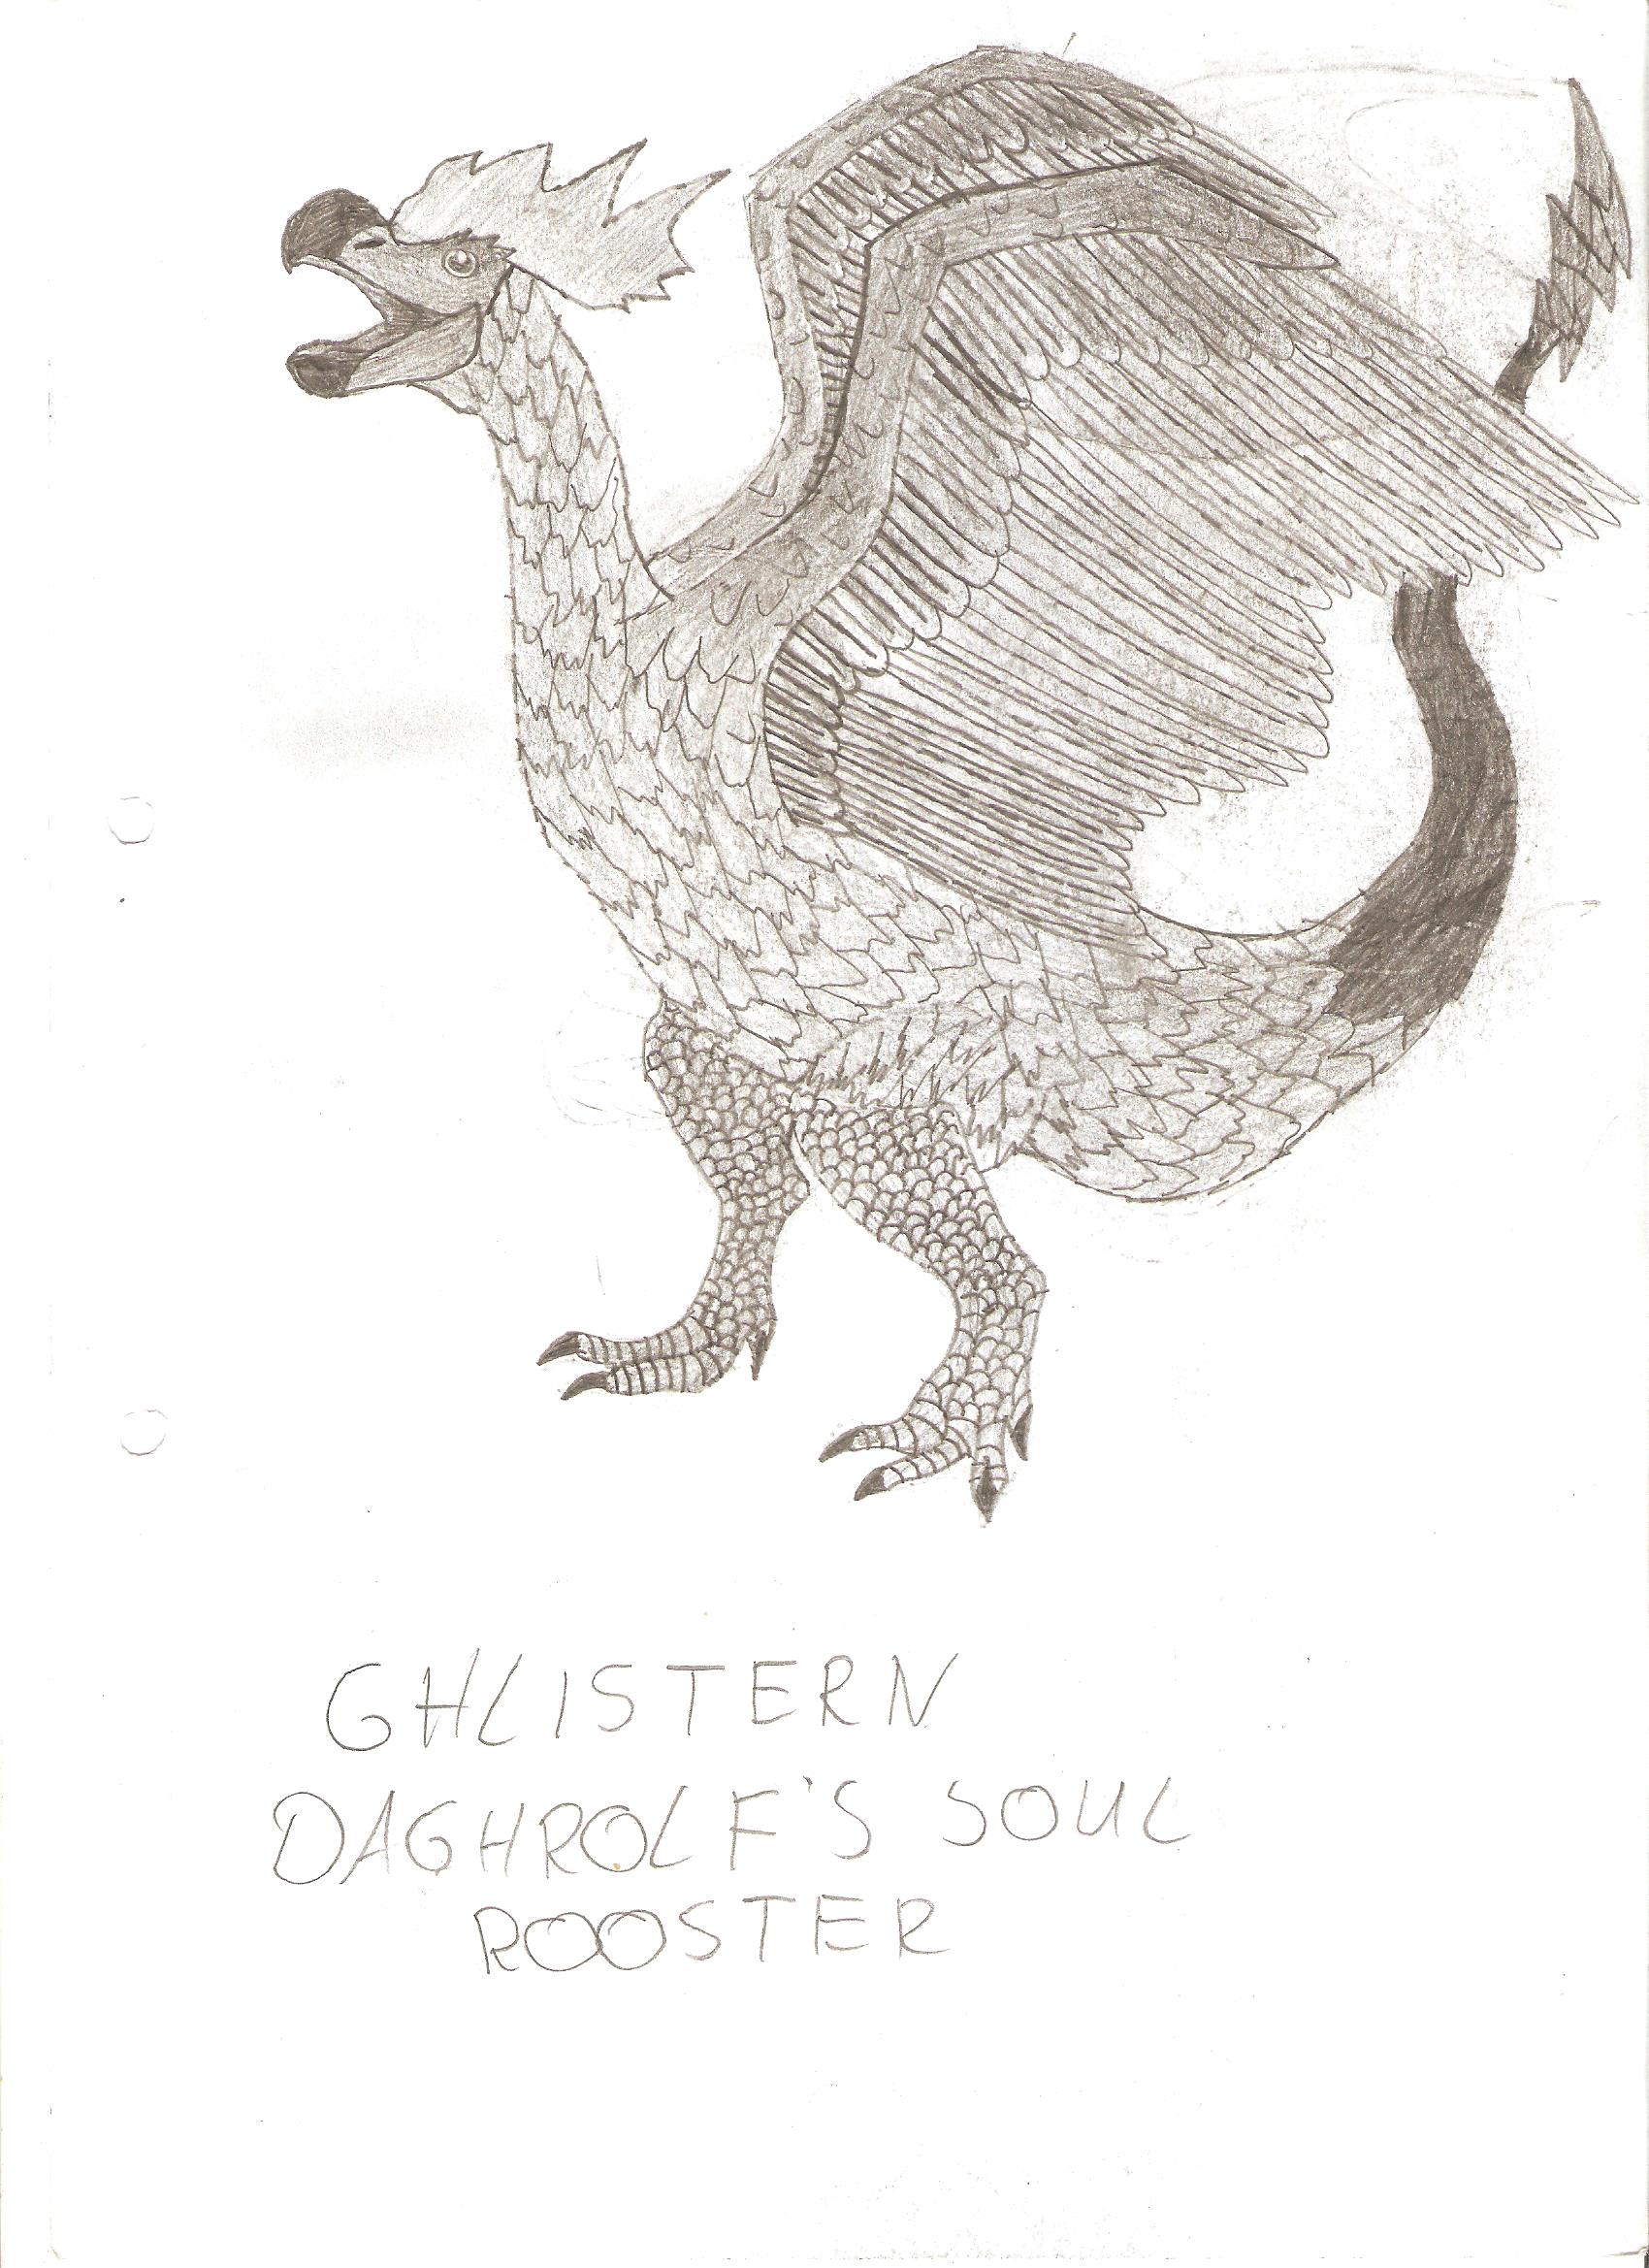 GHLISTERN
DAGHROLF'S SOUL
ROOSTER